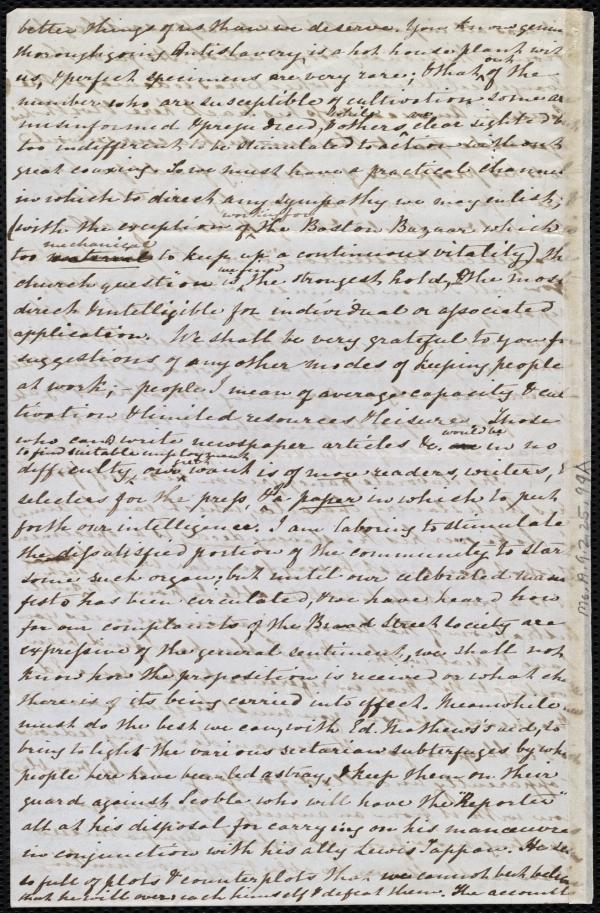 better things of us than we deserve. You know genuine
thorough going Antislavery is a hot house plant with
us, & perfect specimens are very rare; & that out of the
number who are susceptible of cultivation some are
misinformed & prejudiced, & others, while clear sighted are
too indifferent to be stimulated to action without
great coaxing. So we must have a practical channel
in which to direct any sympathy we may enlist;
(with the exception of working for the Boston Bazaar which
too mechanical to keep up a continuous vitality) the
church question is the strongest hold, & the most
direct & intelligible for individual or associated
application. We shall be very grateful to you for
suggestions of any other modes of keeping people
at work; – people I mean of average capacity & cul
tivation & limited resources & leisure. Those
who can write newspaper articles &c. would be in no
difficulty to find suitable employment, our want is of more readers, writers, &
selectors for the press, & a paper in which to put
forth our intelligence. I am laboring to stimulate
the dissatisfied portion of the community to start
some such organ; but until our celebrated mani
festo has been circulated, & we have heard how
far our complaints of the Broad Street Society are
expressive of the general sentiment, we shall not
know how the proposition is received or what chance
there is of its being carried into effect. Meanwhile
must do the best we can, with Ed. Mathews's aid, to
bring to light the various sectarian subterfuges by which
people here have been led astray, & keep them on their
guard against Scoble who will have the "Reporter"
all at his disposal for carrying on his manœuvres
in conjunction with his ally Lewis Tappan. He is
so full of plots & counterplots that we cannot but believe
that he will overreach himself & defeat them. The accounts
Ms.A.9.2.25.99A